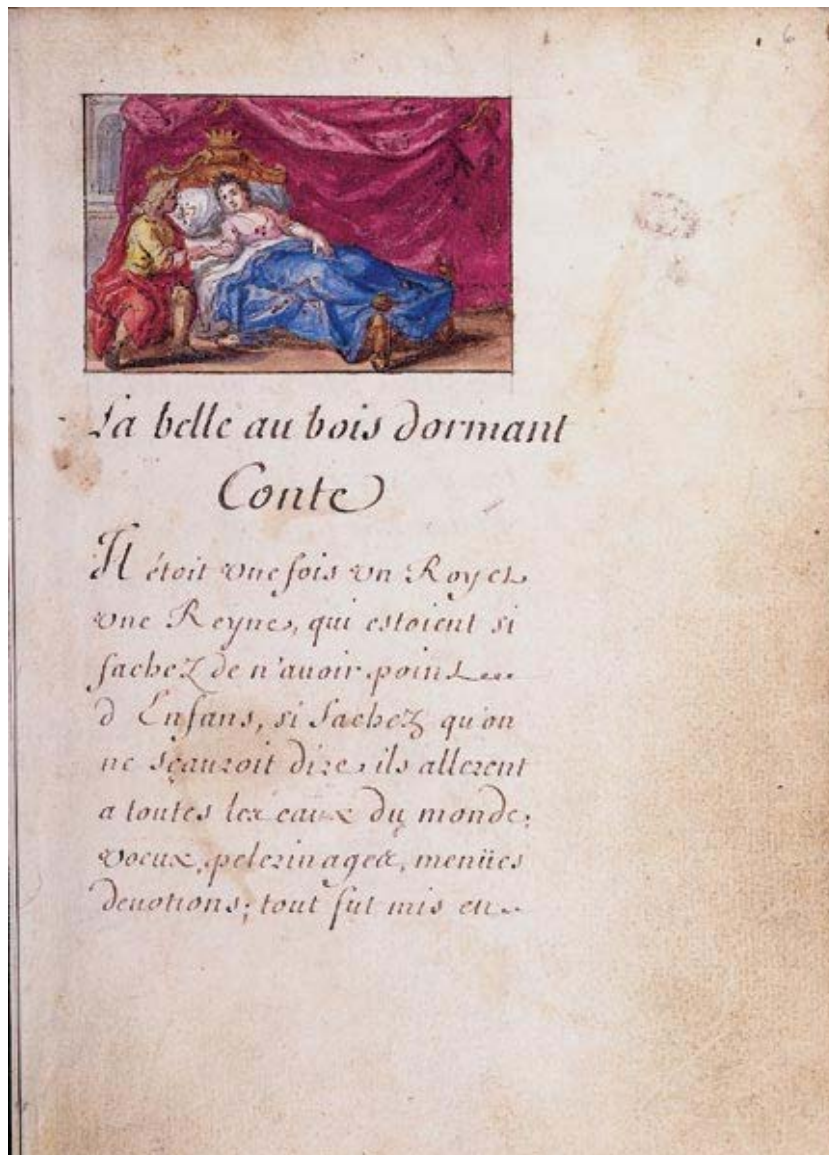 6
La belle au bois dormant
Conte
Il étoit vne fois vn Roy et
vne Reyne, qui estoient si
fachez de n'auoir point
d Enfans, si fachez qu'on
ne sçauroit dire, ils allerent
a toutes les eaux du monde,
voeux, pelerinages, menües
deuotions; tout fut mis en